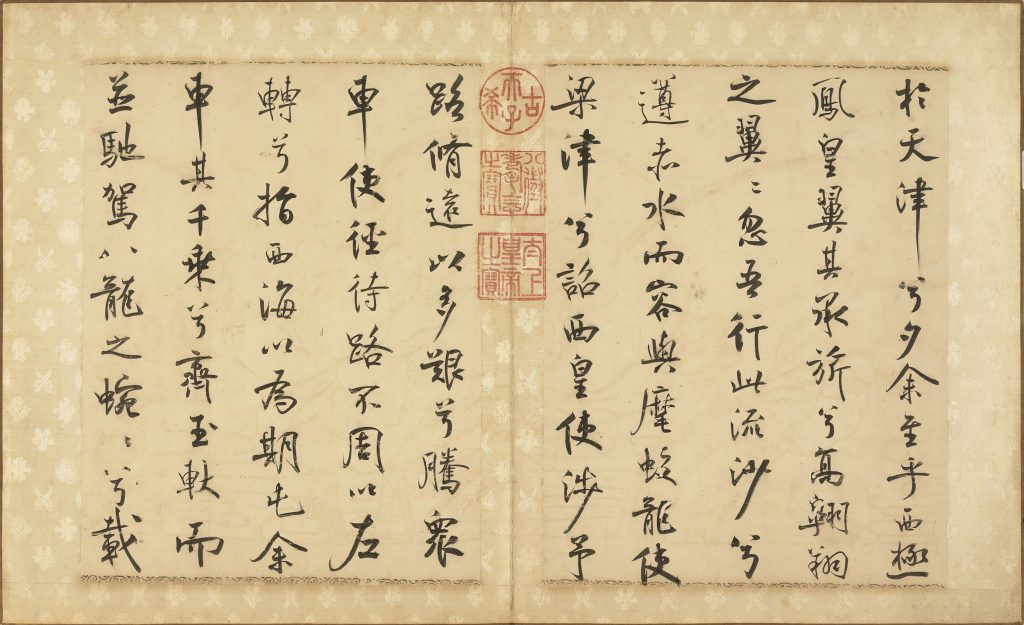 於天津兮夕余至乎西極
鳳皇翼其承旂兮高翱翔
之翼〻忽吾行此流沙兮
遵赤水而容與麾蛟龍使
梁津兮詔西皇使涉予
古
希
天
子
八徵
耄念
之寶
太上
皇帝
之寶
路脩遠以多艱兮騰衆
車使徑待路不周以左
轉兮指西海以為期屯余
車其千乘兮齊玉軑而
並馳駕八龍之蜿〻兮載